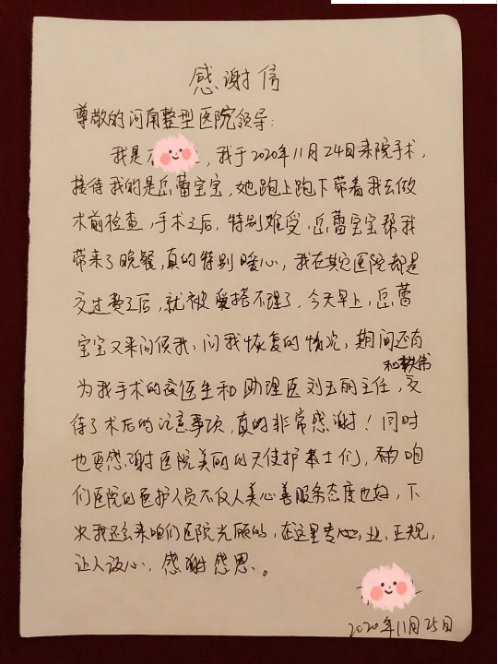 感谢信
尊敬的河南整型医院领导:
我是 , 我于2020年11月24日来院手术,
接待我的是岳蕾宝宝, 她跑上跑下带着我去做
术前检查, 手术之后, 特别难受, 岳蕾宝宝帮我
带来了晚餐, 真的特别暖心, 我在其它医院都是
交过费之后, 就被爱搭不理了, 今天早上, 岳蕾
宝宝又来问候我, 问我恢复的情况, 期间还有
为我手术的 医生和助理医刘玉丽主任, 交
待了术后的注意事项, 真的非常感谢! 同时
也要感谢医院美丽的天使护士们, 咱
们医院的医护人员不仅人美心善服务态度也好, 下
次我还会来咱们医院光顾的, 在这里专业, 正规,
让人放心, 感谢感恩。
2020年11月25日